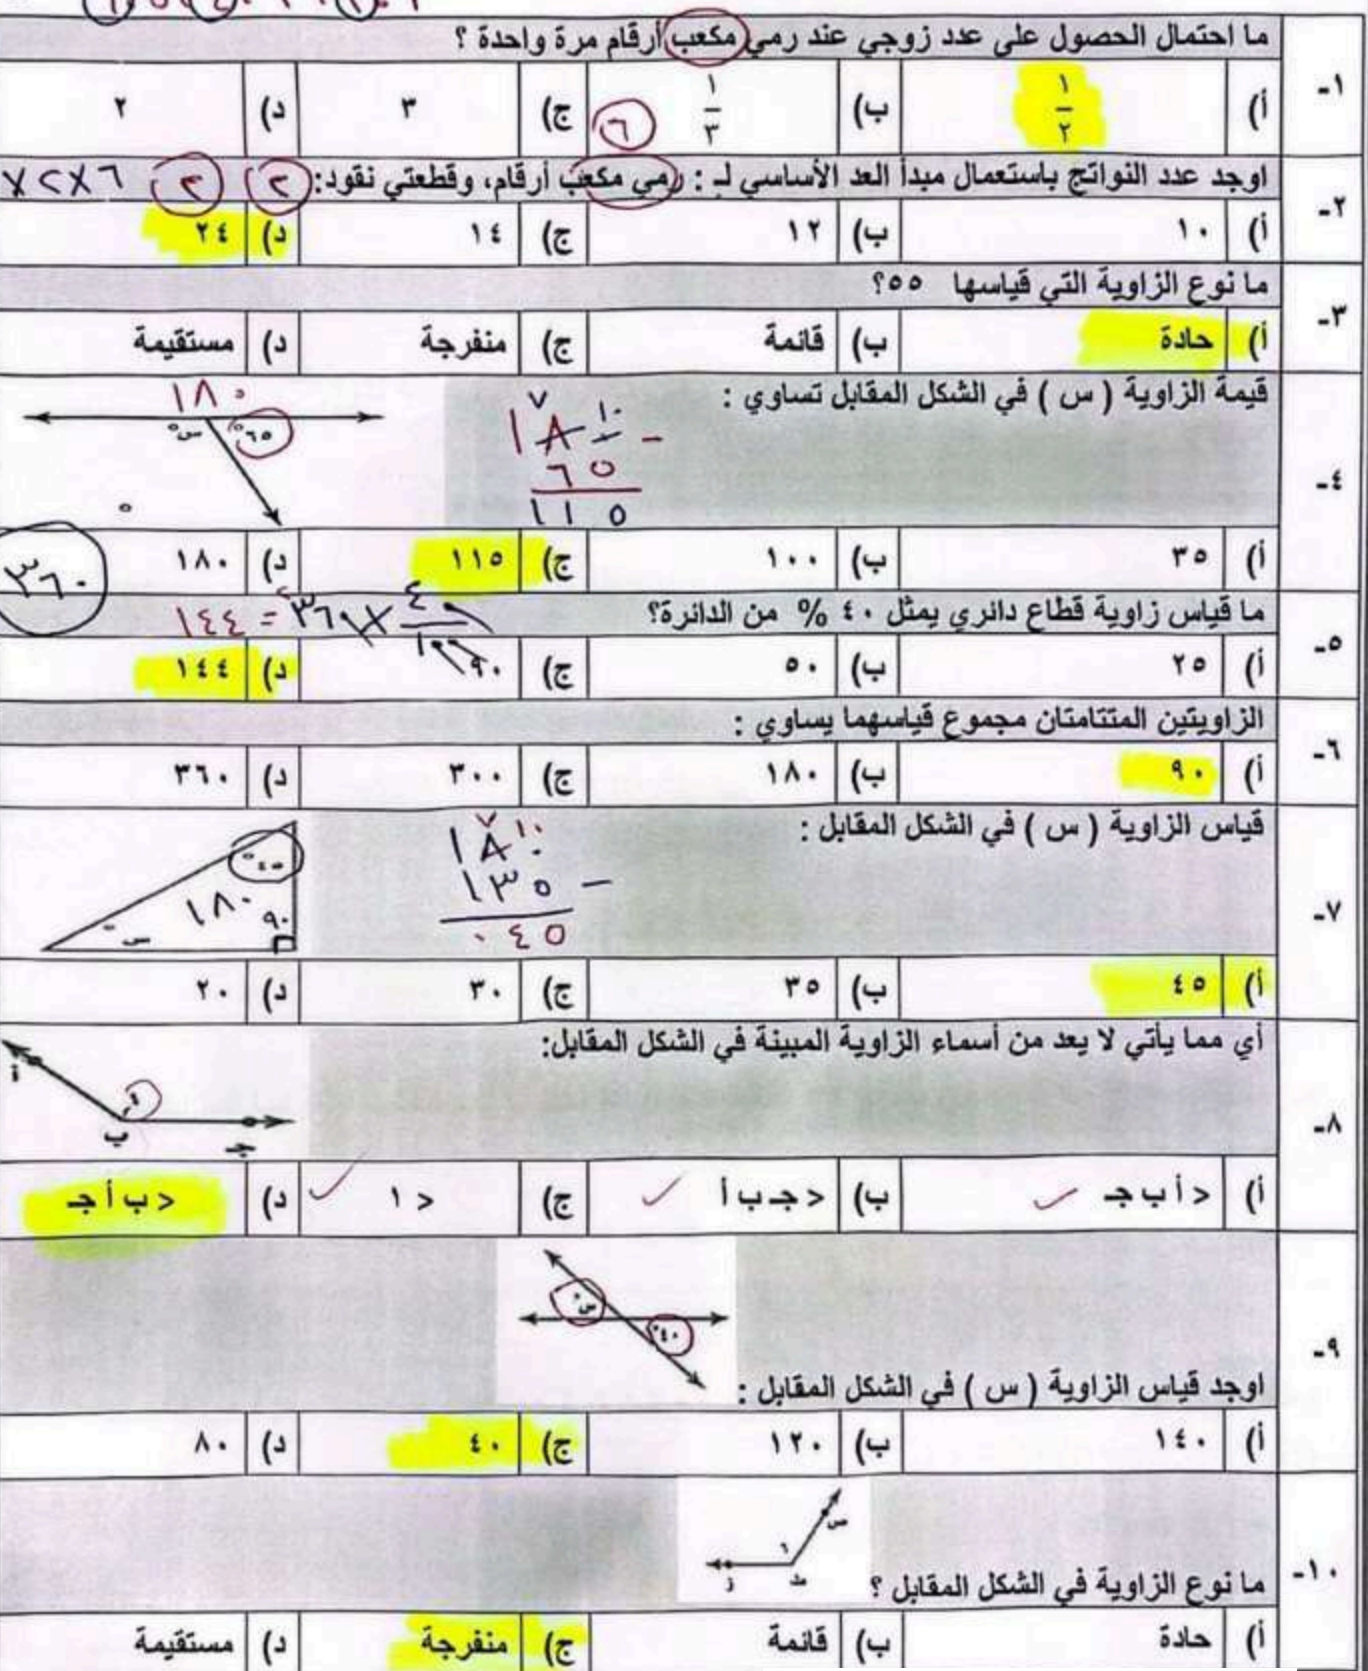 ١- ما احتمال الحصول على عدد زوجي عند رمي مكعب أرقام مرة واحدة ؟
أ) ١/٢ ب) ١/٣ ج) ٣ د) ٢
٦
٢- اوجد عدد النواتج باستعمال مبدأ العد الأساسي لـ : رمي مكعب أرقام، وقطعتي نقود:
٢ ٢ ٦×٢×٢
أ) ١٠ ب) ١٢ ج) ١٤ د) ٢٤
٣- ما نوع الزاوية التي قياسها ٥٥؟
أ) حادة ب) قائمة ج) منفرجة د) مستقيمة
٤- قيمة الزاوية ( س ) في الشكل المقابل تساوي :
١٨٠°
س° ٦٥°
٧ ١٠
١٨٠ -
٦٥
١١٥
أ) ٣٥ ب) ١٠٠ ج) ١١٥ د) ١٨٠
٣٦٠
٥- ما قياس زاوية قطاع دائري يمثل ٤٠ % من الدائرة؟
٤٠/١٠٠ × ٣٦٠ = ١٤٤
أ) ٢٥ ب) ٥٠ ج) ٩٠ د) ١٤٤
٦- الزاويتين المتتامتان مجموع قياسهما يساوي :
أ) ٩٠ ب) ١٨٠ ج) ٣٠٠ د) ٣٦٠
٧- قياس الزاوية ( س ) في الشكل المقابل :
٧ ١٠
١٨٠
١٣٥ -
٠٤٥
٤٥°
١٨٠
٩٠
س°
أ) ٤٥ ب) ٣٥ ج) ٣٠ د) ٢٠
٨- أي مما يأتي لا يعد من أسماء الزاوية المبينة في الشكل المقابل:
أ
١
ب جـ
أ) > أ ب جـ ب) > جـ ب أ ج) > ١ د) > ب أ جـ
س°
٤٠°
٩- اوجد قياس الزاوية ( س ) في الشكل المقابل :
أ) ١٤٠ ب) ١٢٠ ج) ٤٠ د) ٨٠
س
١
١٠- ما نوع الزاوية في الشكل المقابل ؟
أ) حادة ب) قائمة ج) منفرجة د) مستقيمة